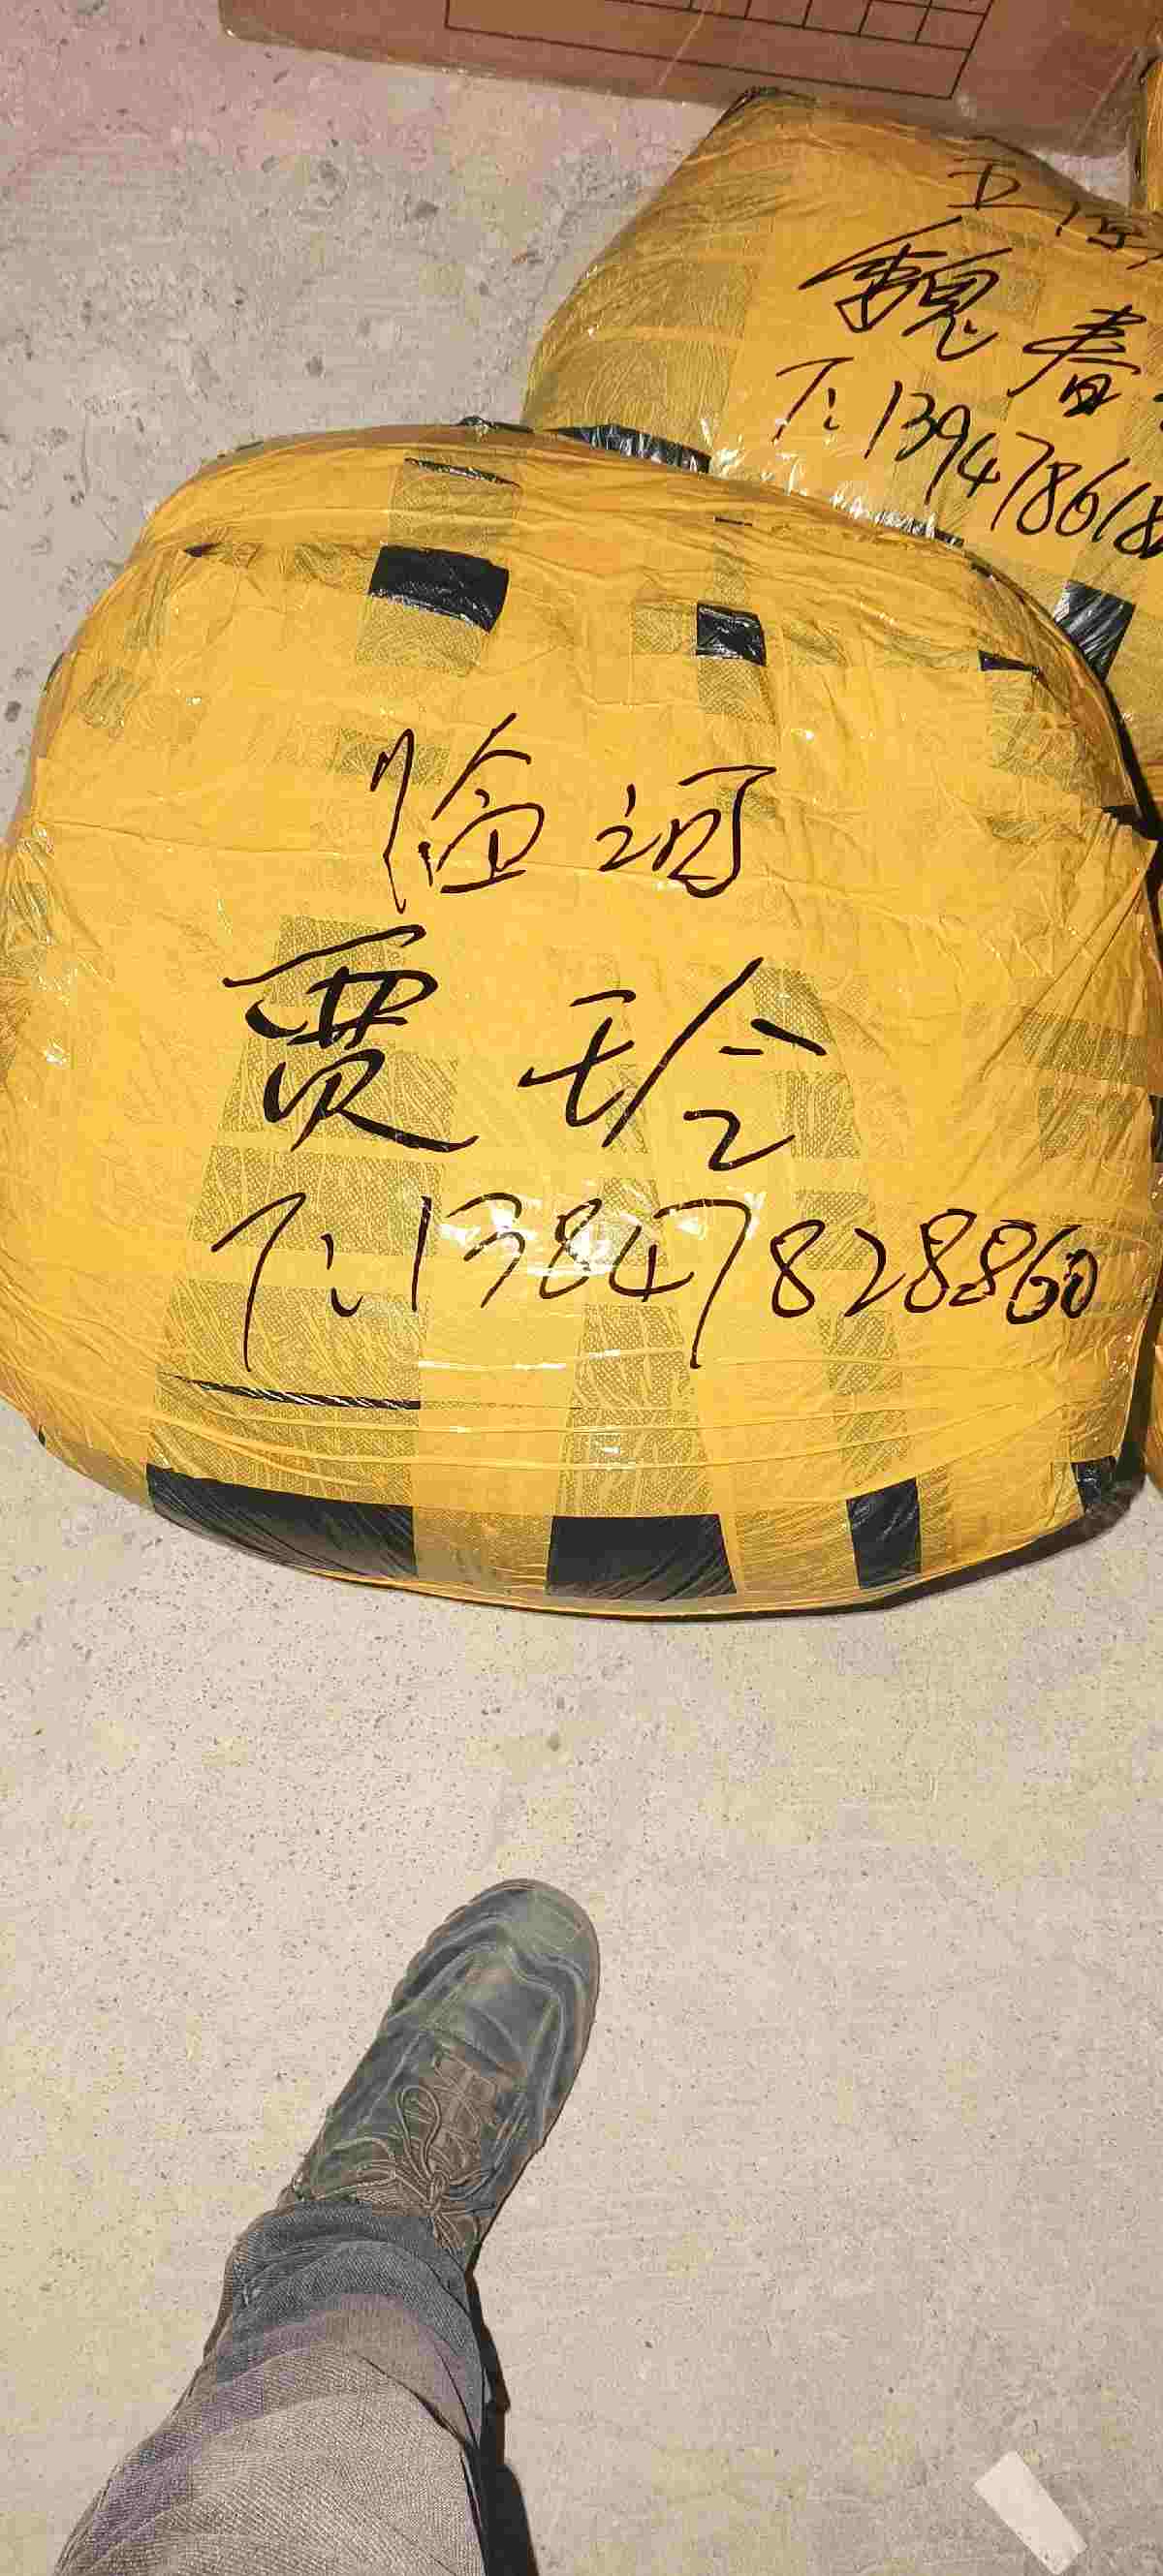 五原
魏春
T:139478618
临河
贾玲
T:13847828860